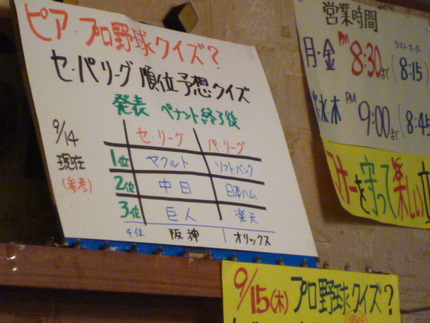 ピア プロ野球クイズ?
セ・パリーグ 順位予想クイズ
発表 ペナント終了後
9/14
現在
(参考)
セ・リーグ パ・リーグ
1位 ヤクルト ソフトバンク
2位 中日 日本ハム
3位 巨人 楽天
4位 阪神 オリックス
営業時間
月・金 PM 8:30まで (8:15)
水木 PM 9:00まで (8:45
ナーを守って楽しい
9/15(木) プロ野球クイズ?